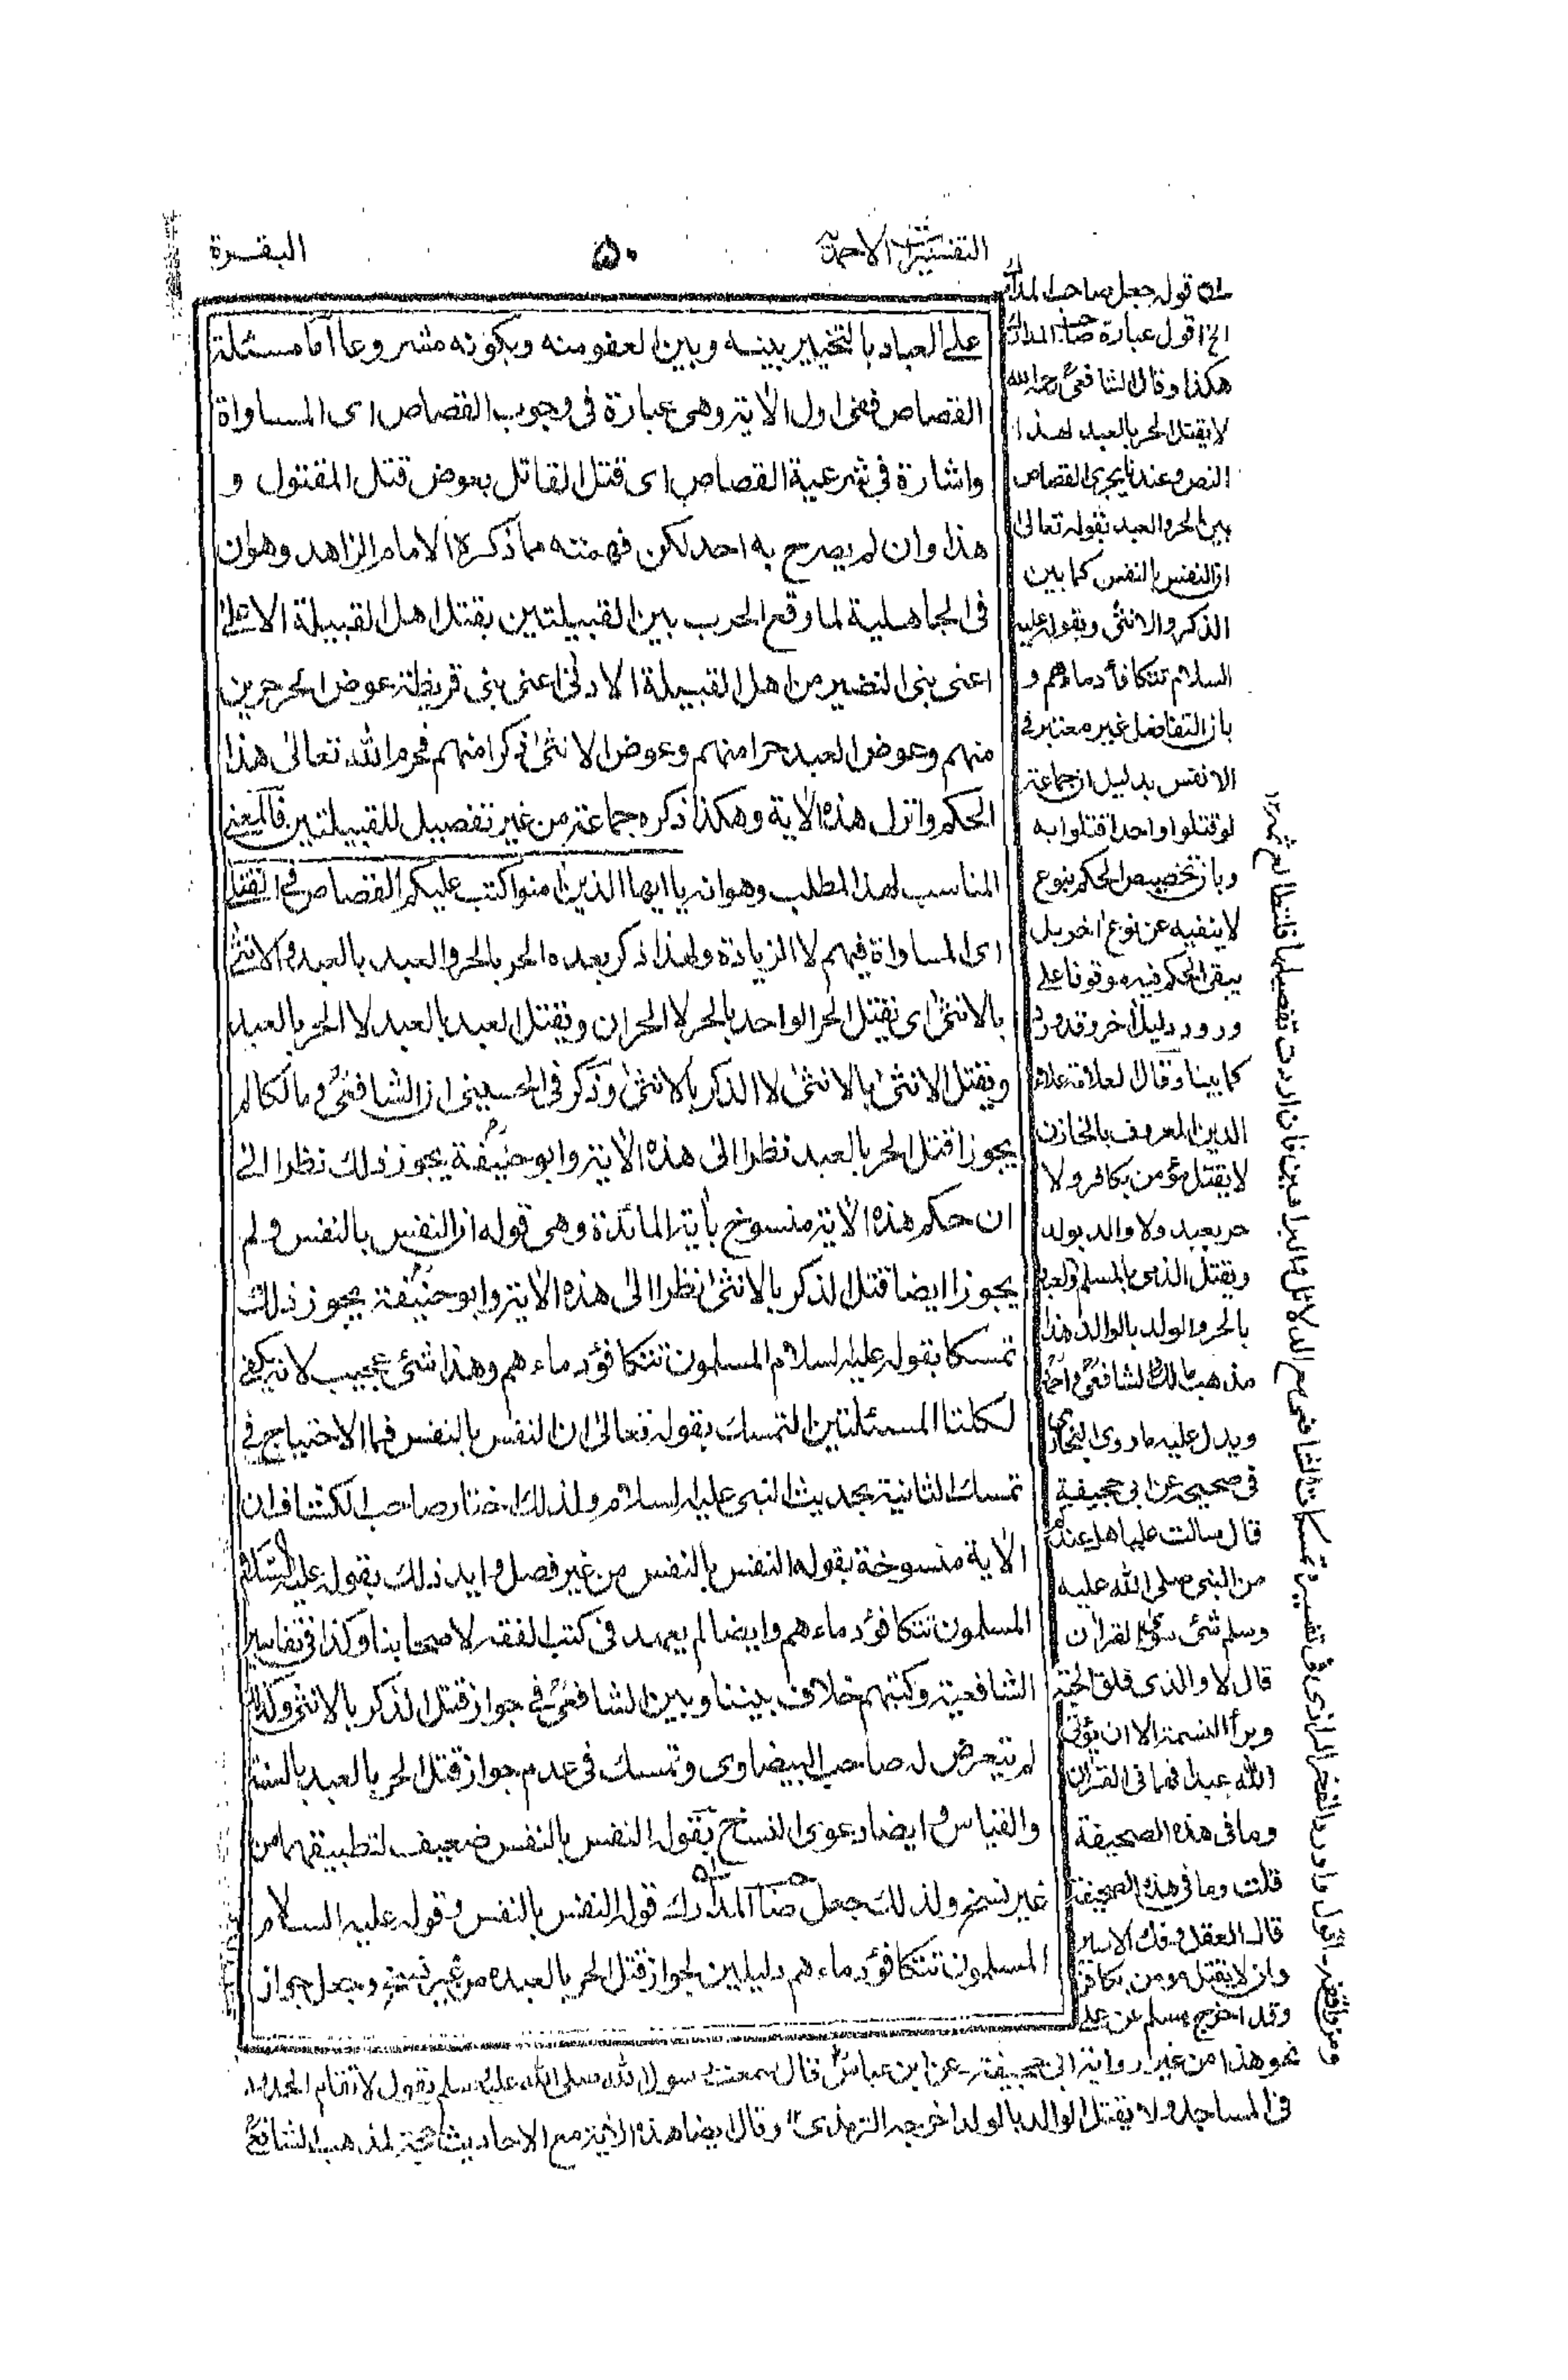 التفسيرات الاحمدية
۵۰
البقرة
على العباد بالتخيير بينه وبين العفو منه وبكونه مشروعا اما مسئلة
القصاص ففى اول الاٰية وهى عبارة فى وجوب القصاص اى المساواة
واشارة فى شرعية القصاص اى قتل القاتل بعوض قتل المقتول و
هذا وان لم يصرح به احد لكن فهمته مما ذكره الامام الزاهد وهو ان
فى الجاهلية لما وقع الحرب بين القبيلتين يقتل اهل القبيلة الاعلىٰ
اعنى بنى النضير من اهل القبيلة الادنىٰ اعنى بنى قريظة عوض الحر حرين
منهم وعوض العبد حرا منهم وعوض الانثىٰ ذكرا منهم فحرم الله تعالىٰ هذا
الحكم وانزل هذه الاٰية وهكذا ذكره جماعة من غير تفصيل للقبيلتين فالمعنى
المناسب لهذا المطلب وهو انه يا ايها الذين اٰمنوا كتب عليكم القصاص فى القتلىٰ
اى المساواة فيهم لا الزيادة ولهذا ذكر بعده الحر بالحر والعبد بالعبد والانثىٰ
بالانثىٰ اى يقتل الحر الواحد بالحر لا الحران ويقتل العبد بالعبد لا الحر بالعبد
ويقتل الانثىٰ بالانثىٰ لا الذكر بالانثىٰ وذكر فى الحسينى ان الشافعىؒ ومالكا لم
يجوزا قتل الحر بالعبد نظرا الىٰ هذه الاٰية وابو حنيفةؒ يجوز ذلك نظرا الىٰ
ان حكم هذه الاٰية منسوخ باٰية المائدة وهى قوله ان النفس بالنفس ولم
يجوزا ايضا قتل الذكر بالانثىٰ نظرا الىٰ هذه الاٰية وابو حنيفةؒ يجوز ذلك
تمسكا بقوله عليه السلام المسلمون تتكافؤ دماءهم وهذا شئ عجيب لانه يكفى
لكلتا المسئلتين التمسك بقوله تعالىٰ ان النفس بالنفس فما الاحتياج فى
تمسك الثانية بحديث النبى عليه السلام ولذلك اختار صاحب الكشاف ان
الاٰية منسوخة بقوله النفس بالنفس من غير فصل وايد ذلك بقوله عليه السلام
المسلمون تتكافؤ دماءهم وايضا لم يعهد فى كتب الفقه لاصحابنا وكذا فى تفاسير
الشافعية وكتبهم خلاف بيننا وبين الشافعىؒ فى جواز قتل الذكر بالانثىٰ ولذلك
لم يتعرض له صاحب البيضاوى وتمسك فى عدم جواز قتل الحر بالعبد بالسنة
والقياس وايضا دعوى النسخ بقوله النفس بالنفس ضعيف لتطبيقهما من
غير نسخ ولذلك جعل صاحب المدارك قوله النفس بالنفس وقوله عليه السلام
المسلمون تتكافؤ دماءهم دليلين لجواز قتل الحر بالعبد من غير نسخ وجعل جواز
له قوله جعل صاحب المدارك
الخ اقول عبارة صاحب المدارك
هكذا وقال الشافعى رحمه الله
لا يقتل الحر بالعبد لهذا
النص وعندنا يجرى القصاص
بين الحر والعبد بقوله تعالىٰ
ان النفس بالنفس كما بين
الذكر والانثىٰ وبقوله عليه
السلام تتكافأ دماؤهم و
بان التفاضل غير معتبر فى
الانفس بدليل ان جماعة
لو قتلوا واحدا قتلوا به
وبان تخصيص الحكم بنوع
لا ينفيه عن نوع اٰخر بل
يبقى الحكم فيه موقوفا على
ورود دليل اٰخر وقد ورد
كما بينا وقال العلامة علاء
الدين المعروف بالخازن
لا يقتل مؤمن بكافر ولا
حر بعبد ولا والد بولد
ويقتل الذمى بالمسلم والعبد
بالحر والولد بالوالد هذا
مذهب مالك والشافعىؒ واحمدؒ
ويدل عليه ما روى البخارى
فى صحيحه عن ابى جحيفة
قال سالت عليا هل عندكم
من النبى صلى الله عليه
وسلم شئ سوى القراٰن
قال لا والذى فلق الحبة
وبرأ النسمة الا ان يؤتى
الله عبدا فهما فى القراٰن
وما فى هذه الصحيفة
قلت وما فى هذه الصحيفة
قال العقل وفكاك الاسير
وان لا يقتل مومن بكافر
وقد اخرج مسلم عن على
نحو هذا من غير رواية ابى جحيفة عن ابن عباسؓ قال سمعت رسول الله صلى الله عليه وسلم يقول لا تقام الحدود
فى المساجد ولا يقتل الوالد بالولد اخرجه الترمذى وقال ايضا هذه الاٰية مع الاحاديث حجة لمذهب الشافعىؒ
ومن وافقه اقول وما ورد الفخر الرازى فى تفسيره تمسكات الشافعى مع الدلائل والبراهين فان اردت تفصيلها فلتطالع ثمه ١٢